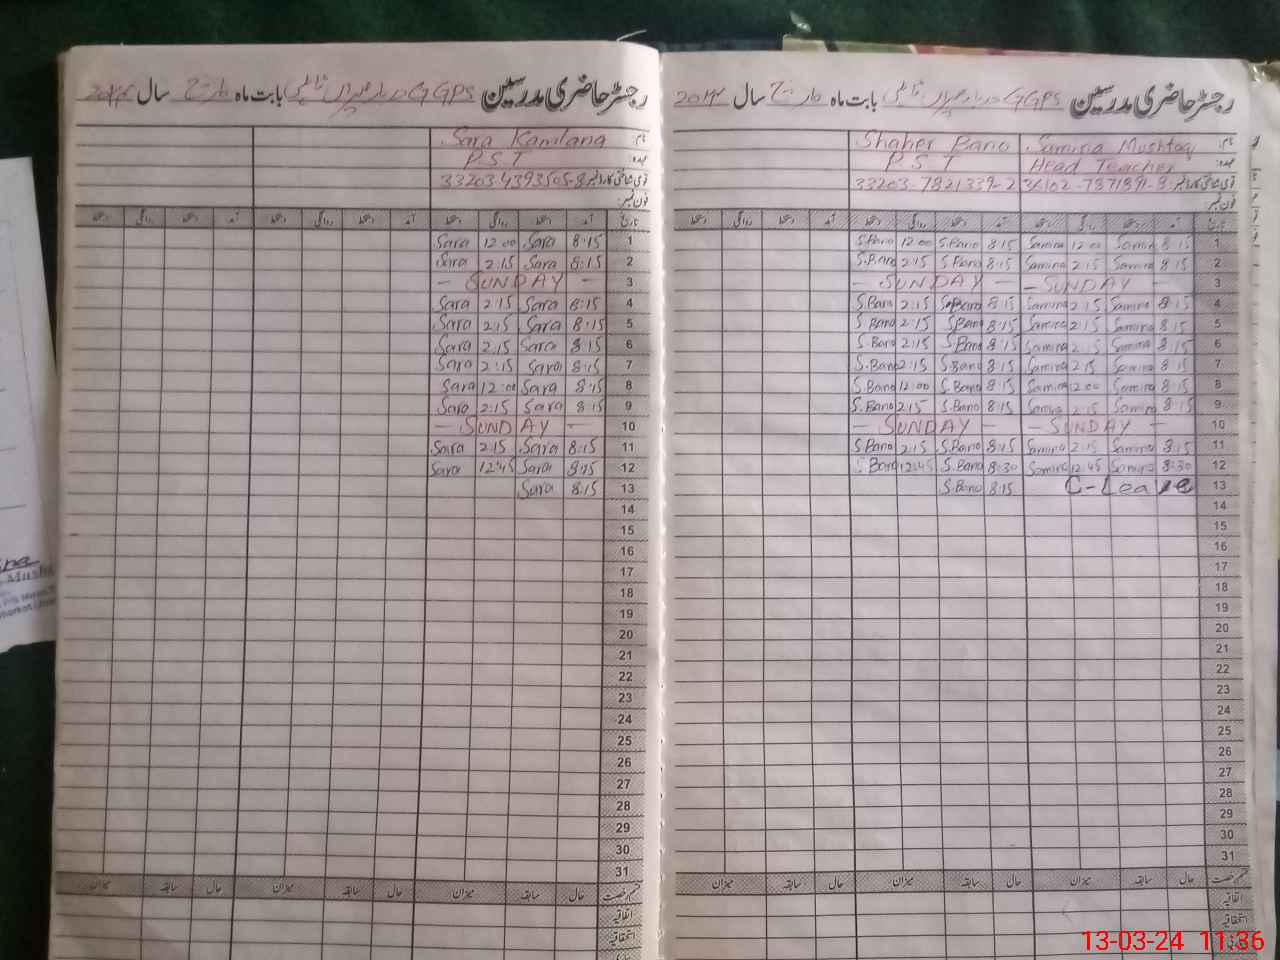 رجسٹر حاضری مدرسین GGPS بابت ماہ مارچ سال 2024
نام: Samina Mushtaq Shaher Bano
عہدہ: Head Teacher P.S.T
قومی شناختی کارڈ نمبر: 33203-7821339-2
فون نمبر:
تاریخ آمد دستخط روانگی دستخط آمد دستخط روانگی دستخط آمد دستخط روانگی دستخط
1 8:15 Samina 12:00 Samina 8:15 S.Bano 12:00 S.Bano
2 8:15 Samina 2:15 Samina 8:15 S.Bano 2:15 S.Bano
3 — SUNDAY — — SUNDAY —
4 8:15 Samina 2:15 Samina 8:15 S.Bano 2:15 S.Bano
5 8:15 Samina 2:15 Samina 8:15 S.Bano 2:15 S.Bano
6 8:15 Samina 2:15 Samina 8:15 S.Bano 2:15 S.Bano
7 8:15 Samina 2:15 Samina 8:15 S.Bano 2:15 S.Bano
8 8:15 Samina 12:00 Samina 8:15 S.Bano 12:00 S.Bano
9 8:15 Samina 2:15 Samina 8:15 S.Bano 2:15 S.Bano
10 — SUNDAY — — SUNDAY —
11 8:15 Samina 2:15 Samina 8:15 S.Bano 2:15 S.Bano
12 8:30 Samina 12:45 Samina 8:30 S.Bano 12:45 S.Bano
13 C-Leave 8:15 S.Bano
14
15
16
17
18
19
20
21
22
23
24
25
26
27
28
29
30
31
قسم رخصت حال سابقہ میزان حال سابقہ میزان حال سابقہ میزان
اتفاقیہ
استحقاقیہ
رجسٹر حاضری مدرسین GGPS بابت ماہ مارچ سال 2024
نام: Sara Kamlana
عہدہ: P.S.T
قومی شناختی کارڈ نمبر: 33203-4393505-8
فون نمبر:
تاریخ آمد دستخط روانگی دستخط آمد دستخط روانگی دستخط آمد دستخط روانگی دستخط
1 8:15 Sara 12:00 Sara
2 8:15 Sara 2:15 Sara
3 — SUNDAY —
4 8:15 Sara 2:15 Sara
5 8:15 Sara 2:15 Sara
6 8:15 Sara 2:15 Sara
7 8:15 Sara 2:15 Sara
8 8:15 Sara 12:00 Sara
9 8:15 Sara 2:15 Sara
10 — SUNDAY —
11 8:15 Sara 2:15 Sara
12 8:15 Sara 12:45 Sara
13 8:15 Sara
14
15
16
17
18
19
20
21
22
23
24
25
26
27
28
29
30
31
قسم رخصت حال سابقہ میزان حال سابقہ میزان حال سابقہ میزان
اتفاقیہ
استحقاقیہ
13-03-24 11:36